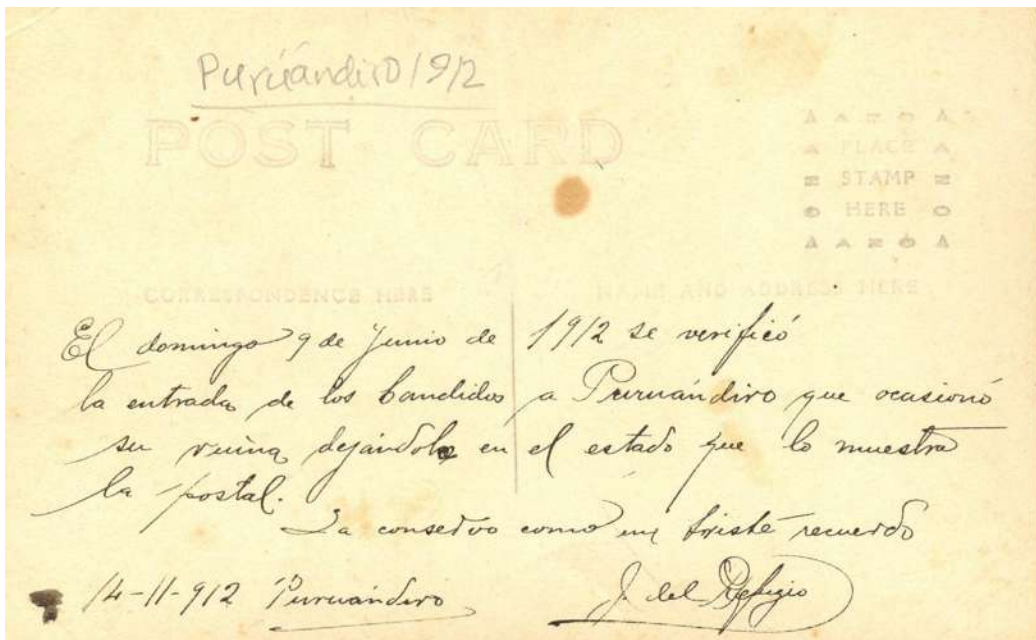 Puruándiro 1912
POST CARD
PLACE
STAMP
HERE
CORRESPONDENCE HERE
NAME AND ADDRESS HERE
El domingo 9 de Junio de 1912 se verificó
la entrada de los bandidos a Puruándiro que ocasionó
su ruina dejándolo en el estado que lo muestra
la postal.
La conservo como un triste recuerdo
14-11-912 Puruándiro J. del Refugio